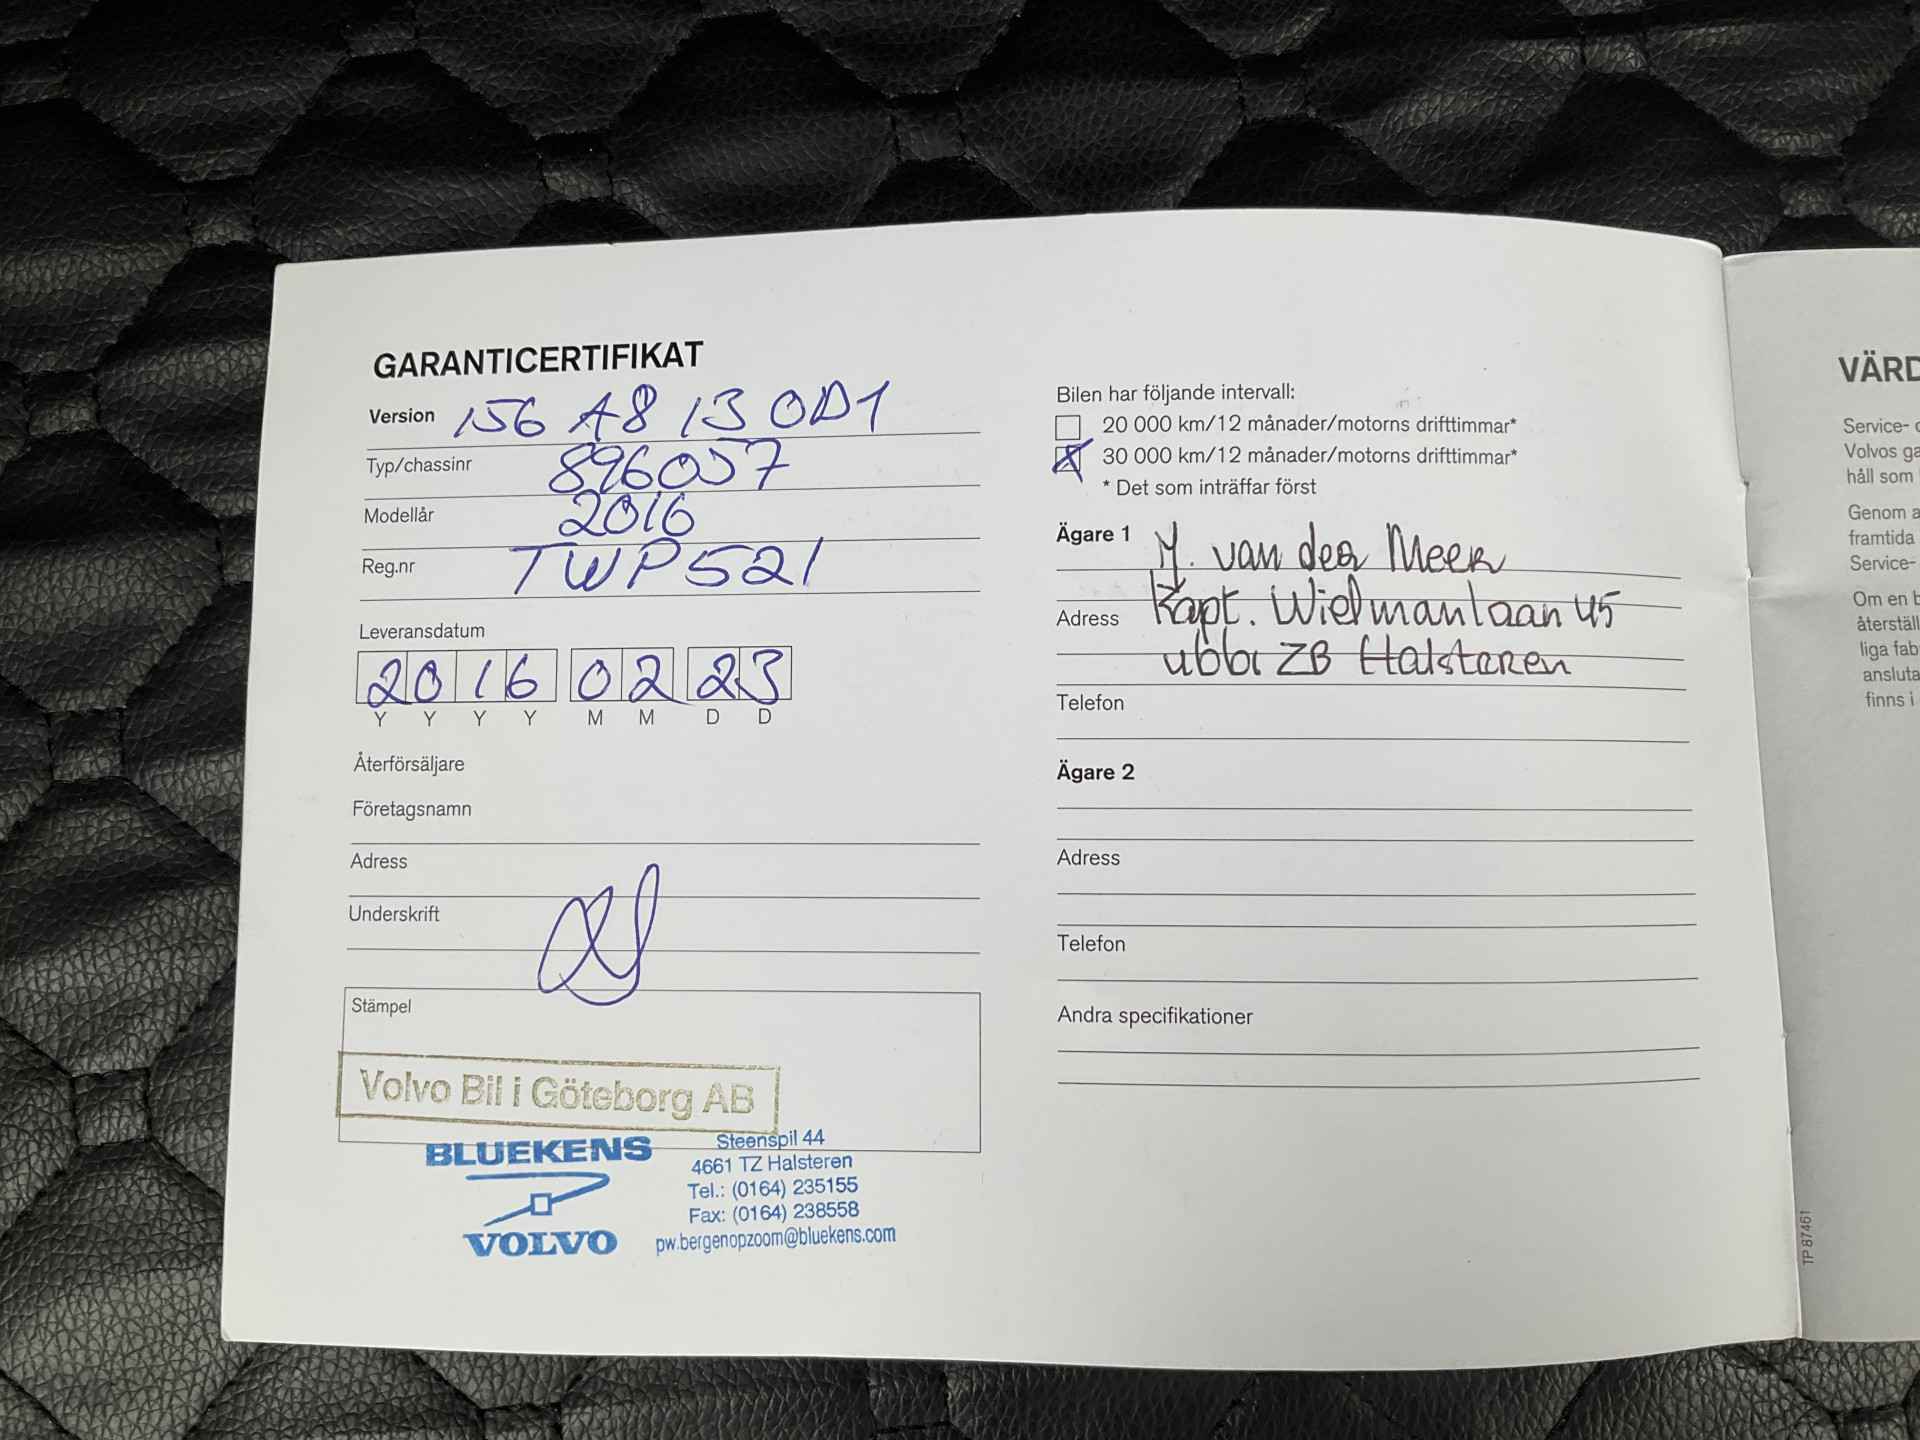 GARANTICERTIFIKAT
Version 156 A8 13 0D1
Typ/chassinr 896057
Modellår 2016
Reg.nr TWP521
Leveransdatum
2016 02 23
Y Y Y Y M M D D
Återförsäljare
Företagsnamn
Adress
Underskrift
Stämpel
Volvo Bil i Göteborg AB
BLUEKENS
VOLVO
Steenspil 44
4661 TZ Halsteren
Tel.: (0164) 235155
Fax: (0164) 238558
pw.bergenopzoom@bluekens.com
Bilen har följande intervall:
20 000 km/12 månader/motorns drifttimmar*
30 000 km/12 månader/motorns drifttimmar*
* Det som inträffar först
Ägare 1 van der Meer
Adress Kapt. Wielmanlaan 45
ZB Halsteren
Telefon
Ägare 2
Adress
Telefon
Andra specifikationer
TP 87461
VÄRD
Service-
Volvos ga
håll som
Genom a
framtida
Service-
Om en b
återställ
liga fab
ansluta
finns i